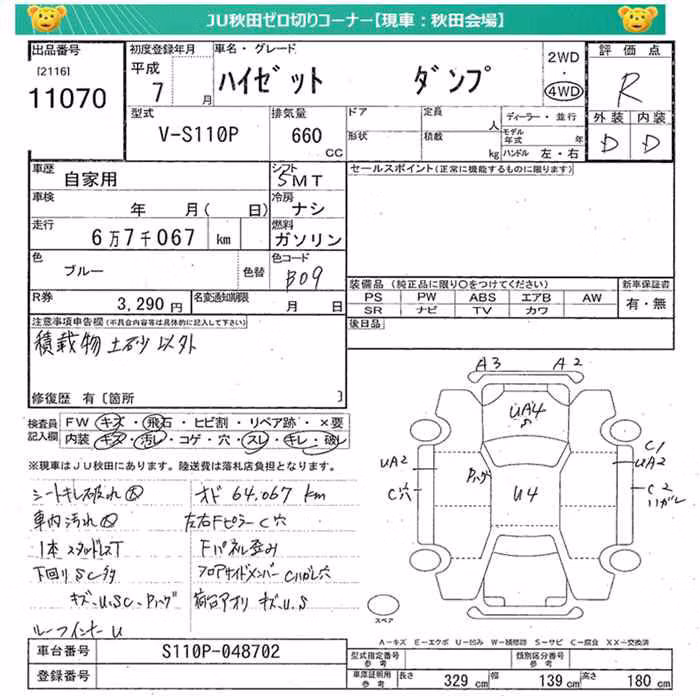 JU秋田ゼロ切りコーナー【現車：秋田会場】
出品番号
[2116]
11070
初度登録年月
平成
7 月
車名・グレード
ハイゼット ダンプ
2WD
・
4WD
評価点
R
外装 内装
D D
型式
V-S110P
排気量
660 CC
ドア
形状
定員 人
積載 kg
ディーラー・並行
モデル年式 年
ハンドル 左・右
車歴
自家用
シフト
5MT
車検
年 月( 日)
冷房
ナシ
走行
6万7千067 km
燃料
ガソリン
色
ブルー
色替
色コード
B09
R券
3,290円
名変通知期限
月 日
セールスポイント(正常に機能するものに限ります)
装備品(純正品に限り〇をつけてください)
PS PW ABS エアB AW
SR ナビ TV カワ
新車保証書
有・無
後日品
注意事項申告欄(不具合内容等は具体的に記入して下さい)
積載物土砂以外
修復歴 有〔箇所 〕
検査員記入欄
FW キズ・飛石・ヒビ割・リペア跡・×要
内装 キズ・汚レ・コゲ・穴・スレ・キレ・破レ
※現車はJU秋田にあります。陸送費は落札店負担となります。
シートキレ破れ大
車内汚れ大
1本スタッドレスT
下回りSC多
キズ・U.SC・Pハゲ
ルーフインナーU
オド 64,067 km
左右Fピラー C穴
Fパネル歪み
フロアサイドメンバーCハガレ穴
荷台アオリ キズ・U.S
A3 A2
UA4
UA2
C穴
Pハゲ
U4
C1
UA2
C2
ハガレ
スペア
A－キズ E－エクボ U－凹み W－補修跡 S－サビ C－腐食 XX－交換済
車台番号
S110P-048702
登録番号
型式指定番号
参考
類別区分番号
参考
車庫証明用
参考
長さ 329 cm
幅 139 cm
高さ 180 cm